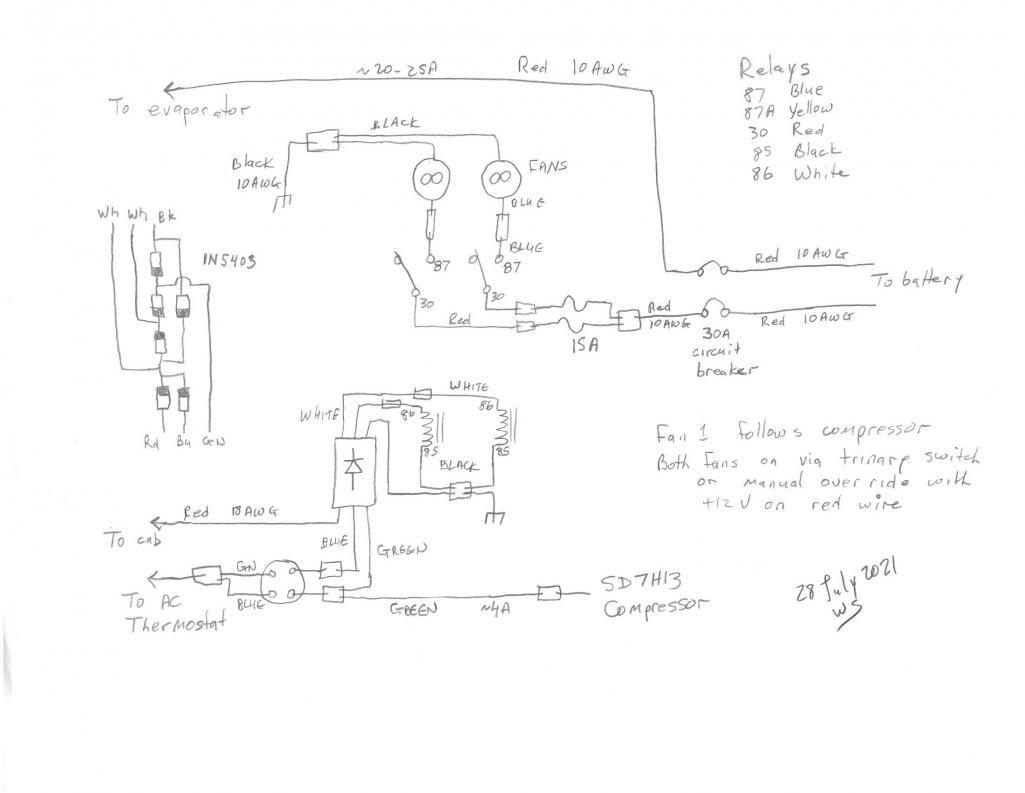 ~20-25A Red 10AWG
To evaporator
Relays
87 Blue
87A Yellow
30 Red
85 Black
86 White
BLACK
Black
10AWG
FANS
BLUE
BLUE
87
87
30
30
Red
15A
Red
10AWG
30A
circuit
breaker
Red 10AWG
Red 10AWG
To battery
Wh Wh Bk
IN5403
Rd Bu GN
WHITE
WHITE
86
86
85
85
BLACK
Red 18AWG
To cab
BLUE
GREEN
GN
BLUE
To AC
Thermostat
GREEN ~4A
SD7H13
Compressor
Fan 1 follows compressor
Both fans on via trinary switch
or manual over ride with
+12V on red wire
28 July 2021
WS